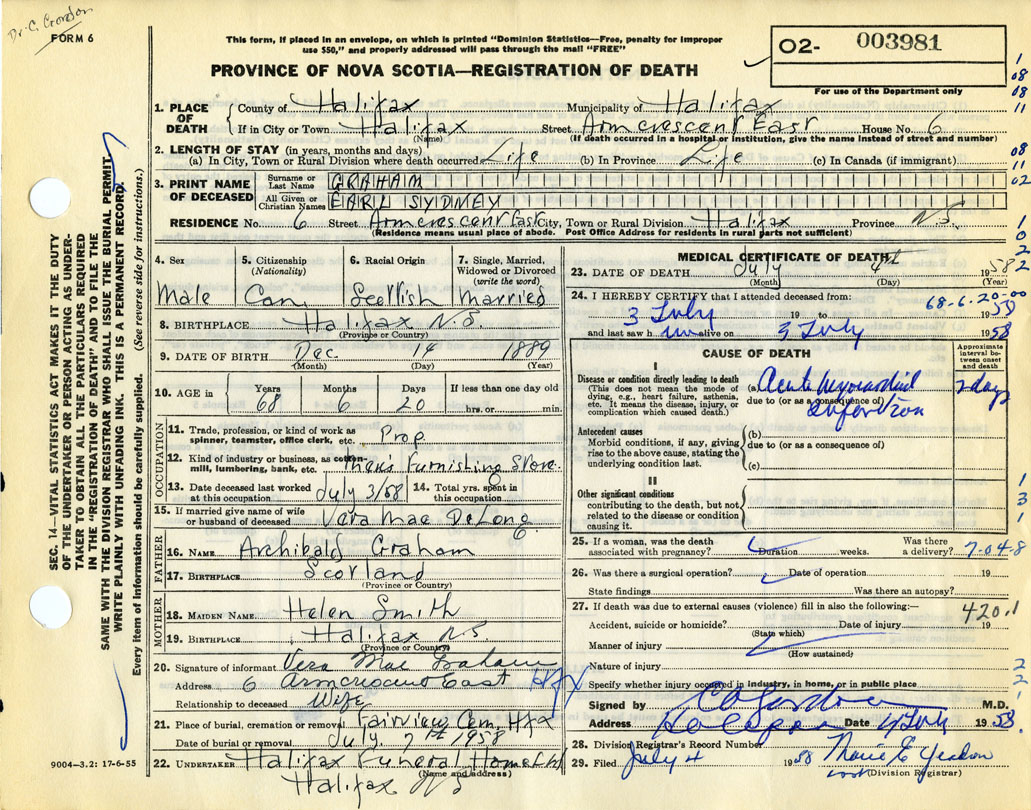 Dr. C. Gordon
FORM 6
This form, if placed in an envelope, on which is printed "Dominion Statistics—Free, penalty for improper
use $50," and properly addressed will pass through the mail "FREE"
O2- 003981
For use of the Department only
PROVINCE OF NOVA SCOTIA—REGISTRATION OF DEATH
1. PLACE OF DEATH
County of Halifax Municipality of Halifax
If in City or Town Halifax Street Armcrescent East House No. 6
(Name) (If death occurred in a hospital or institution, give the name instead of street and number)
2. LENGTH OF STAY (in years, months and days)
(a) In City, Town or Rural Division where death occurred Life (b) In Province Life (c) In Canada (if immigrant)
3. PRINT NAME OF DECEASED
Surname or Last Name GRAHAM
All Given or Christian Names EARL SYDNEY
RESIDENCE No. 6 Street Armcrescent East City, Town or Rural Division Halifax Province N.S.
(Residence means usual place of abode. Post Office Address for residents in rural parts not sufficient)
4. Sex 5. Citizenship (Nationality) 6. Racial Origin 7. Single, Married, Widowed or Divorced (write the word)
Male Can. Scottish Married
8. BIRTHPLACE Halifax N.S.
(Province or Country)
9. DATE OF BIRTH Dec. 14 1889
(Month) (Day) (Year)
10. AGE in Years Months Days If less than one day old
68 6 20 hrs. or min.
OCCUPATION
11. Trade, profession, or kind of work as spinner, teamster, office clerk, etc. Prop.
12. Kind of industry or business, as cotton-mill, lumbering, bank, etc. Men's Furnishing Store.
13. Date deceased last worked at this occupation July 3/58 14. Total yrs. spent in this occupation
15. If married give name of wife or husband of deceased Vera Mae DeLong
FATHER
16. NAME Archibald Graham
17. BIRTHPLACE Scotland
(Province or Country)
MOTHER
18. MAIDEN NAME Helen Smith
19. BIRTHPLACE Halifax N.S
(Province or Country)
20. Signature of informant Vera Mae Graham
Address 6 Armcrescent East Hfx
Relationship to deceased Wife
21. Place of burial, cremation or removal Fairview Cem. Hfx
Date of burial or removal July. 7th 1958
22. UNDERTAKER Halifax Funeral Home Ltd
(Name and address)
Halifax N.S
MEDICAL CERTIFICATE OF DEATH
23. DATE OF DEATH July 4th 1958
(Month) (Day) (Year)
24. I HEREBY CERTIFY that I attended deceased from: 68-6-20-00
3 July 19 to 1958
and last saw him alive on 3 July 1958
CAUSE OF DEATH
Approximate interval between onset and death
I
Disease or condition directly leading to death
(This does not mean the mode of dying, e.g., heart failure, asthenia, etc. It means the disease, injury, or complication which caused death.)
(a) Acute Myocardial 2 days
due to (or as a consequence of)
Infarction
Antecedent causes
Morbid conditions, if any, giving rise to the above cause, stating the underlying condition last.
(b)
due to (or as a consequence of)
(c)
II
Other significant conditions
contributing to the death, but not related to the disease or condition causing it.
25. If a woman, was the death associated with pregnancy? Duration weeks. Was there a delivery? 7-04-8
26. Was there a surgical operation? Date of operation 19
State findings Was there an autopsy?
27. If death was due to external causes (violence) fill in also the following:— 420.1
Accident, suicide or homicide? Date of injury 19
(State which)
Manner of injury
(How sustained)
Nature of injury
Specify whether injury occurred in industry, in home, or in public place
Signed by C A Gordon M.D.
Address Halifax Date 4 July 1958.
28. Division Registrar's Record Number
29. Filed July 4 1958 Marie E Yeadon
(Division Registrar)
SEC. 14—VITAL STATISTICS ACT MAKES IT THE DUTY
OF THE UNDERTAKER OR PERSON ACTING AS UNDER-
TAKER TO OBTAIN ALL THE PARTICULARS REQUIRED
IN THE "REGISTRATION OF DEATH" AND TO FILE THE
SAME WITH THE DIVISION REGISTRAR WHO SHALL ISSUE THE BURIAL PERMIT.
WRITE PLAINLY WITH UNFADING INK. THIS IS A PERMANENT RECORD.
Every item of information should be carefully supplied. (See reverse side for instructions.)
9004—3.2: 17-6-55
1
08
08
11
08
11
02
1
0
2
2
2
1
3
1
2
2
1